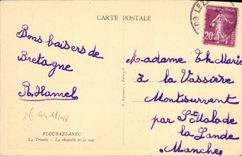 CARTE POSTALE
Bons baisers de
Bretagne
PLOUBAZLANEC
La Trinité - La chapelle et la mer
20
Madame Th. Marie
à la Vassière
Montsurvent
par St Malo de
la Lande
Manche